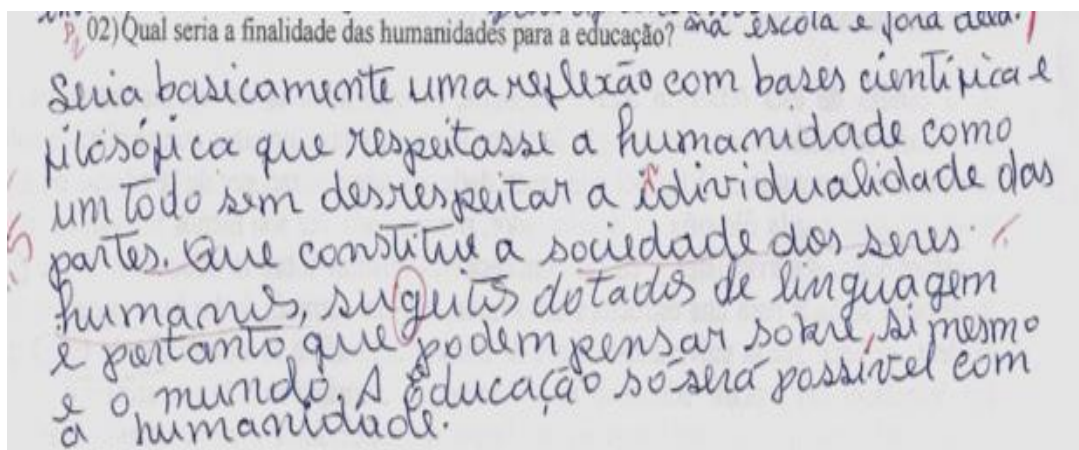 02) Qual seria a finalidade das humanidades para a educação? na escola e fora dela.
Seria basicamente uma reflexão com bases científica e
filosófica que respeitasse a humanidade como
um todo sem desrespeitar a idividualidade das
partes. Que constitui a sociedade dos seres
humanos, sugeitos dotados de linguagem
e portanto, que podem pensar sobre, si mesmo
e o mundo. A Educação só será possível com
a humanidade.